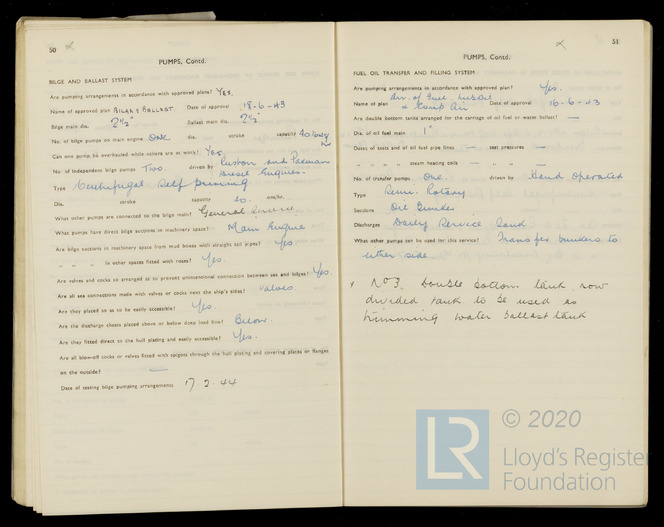 50
PUMPS, Contd.
BILGE AND BALLAST SYSTEM
Are pumping arrangements in accordance with approved plans? Yes.
Name of approved plan BILGE & BALLAST. Date of approval 18-6-43
Bilge main dia. 2½" Ballast main dia. 2½"
No. of bilge pumps on main engine One dia. stroke capacity
Can one pump be overhauled while others are at work? Yes
No. of independent bilge pumps Two. driven by Ruston and Paxman Diesel Engines.
Type Centrifugal Self priming
Dia. stroke capacity ons/hr.
What other pumps are connected to the main? General Service.
What pumps have direct bilge suctions in machinery space? Main Engine
Are bilge suctions in machinery space from mud boxes with straight tail pipes? Yes
" " " in other spaces fitted with roses? Yes.
Are valves and cocks so arranged as to prevent unintentional connection between sea and bilges? Yes.
Are all sea connections made with valves or cocks next the ship's sides? Valves
Are they placed so as to be easily accessible? Yes.
Are the discharge chests placed above or below deep load line? Below.
Are they fitted direct to the hull plating and easily accessible? Yes.
Are all blow-off cocks or valves fitted with spigots through the hull plating and covering plates or flanges
on the outside? —
Date of testing bilge pumping arrangements 17.2.44
51
PUMPS, Contd.
FUEL OIL TRANSFER AND FILLING SYSTEM
Are pumping arrangements in accordance with approved plan? Yes.
Name of plan Arr. of Fuel, Lub Oil & Comp Air Date of approval 16-6-43
Are double bottom tanks arranged for the carriage of oil fuel or water ballast? —
Dia. of oil fuel main 1"
Dates of tests and of oil fuel pipe lines — test pressures —
" " " " steam heating coils — " " —
No. of transfer pumps One. driven by Hand Operated
Type Semi. Rotary
Suctions Oil Bunker
Discharges Daily Service Tank
What other pumps can be used for this service? Transfer bunkers to
either side.
No 3. Double bottom tank now
divided tank to be used as
trimming water ballast tank
LR
© 2020
Lloyd's Register
Foundation